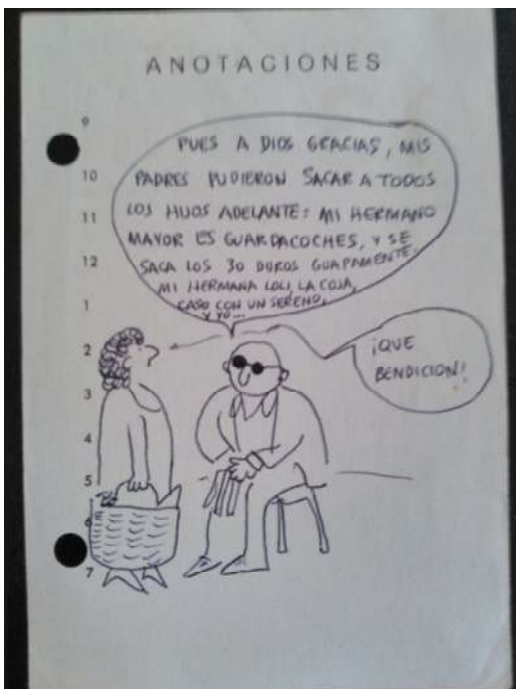 ANOTACIONES
9
10
11
12
1
2
3
4
5
7
PUES A DIOS GRACIAS, MIS
PADRES PUDIERON SACAR A TODOS
LOS HIJOS ADELANTE: MI HERMANO
MAYOR ES GUARDACOCHES, Y SE
SACA LOS 30 DUROS GUAPAMENTE,
MI HERMANA LOLI, LA COJA,
CASO CON UN SERENO,
Y YO...
¡QUE
BENDICION!